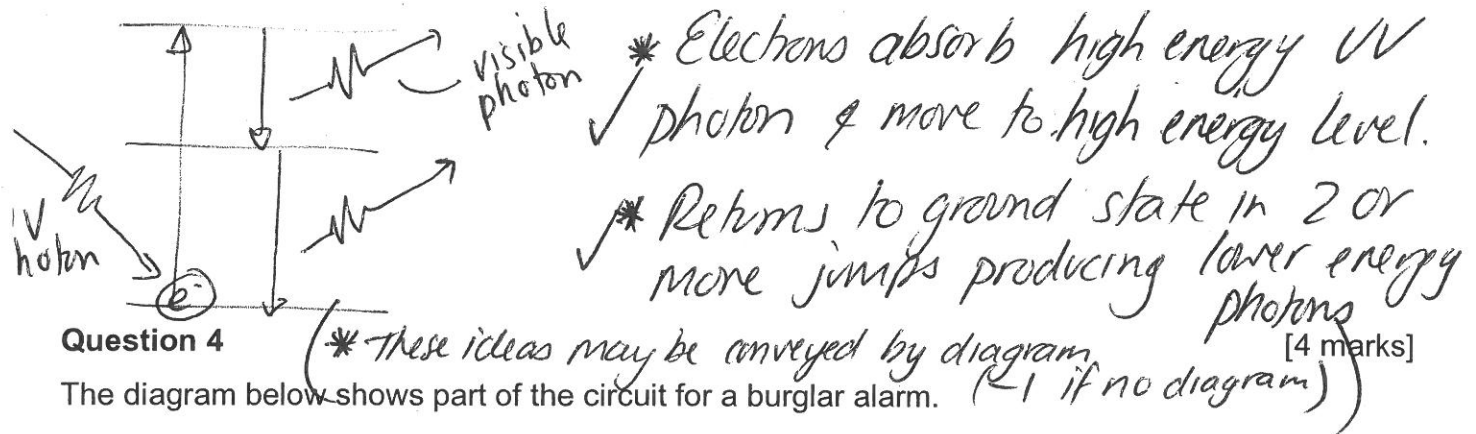 visible
photon
* Electrons absorb high energy UV
✓ photon & move to high energy level.
✓* Returns to ground state in 2 or
more jumps producing lower energy
photons
V
hoton
e⁻
Question 4
(* These ideas may be conveyed by diagram.
[4 marks]
(-1 if no diagram))
The diagram below shows part of the circuit for a burglar alarm.